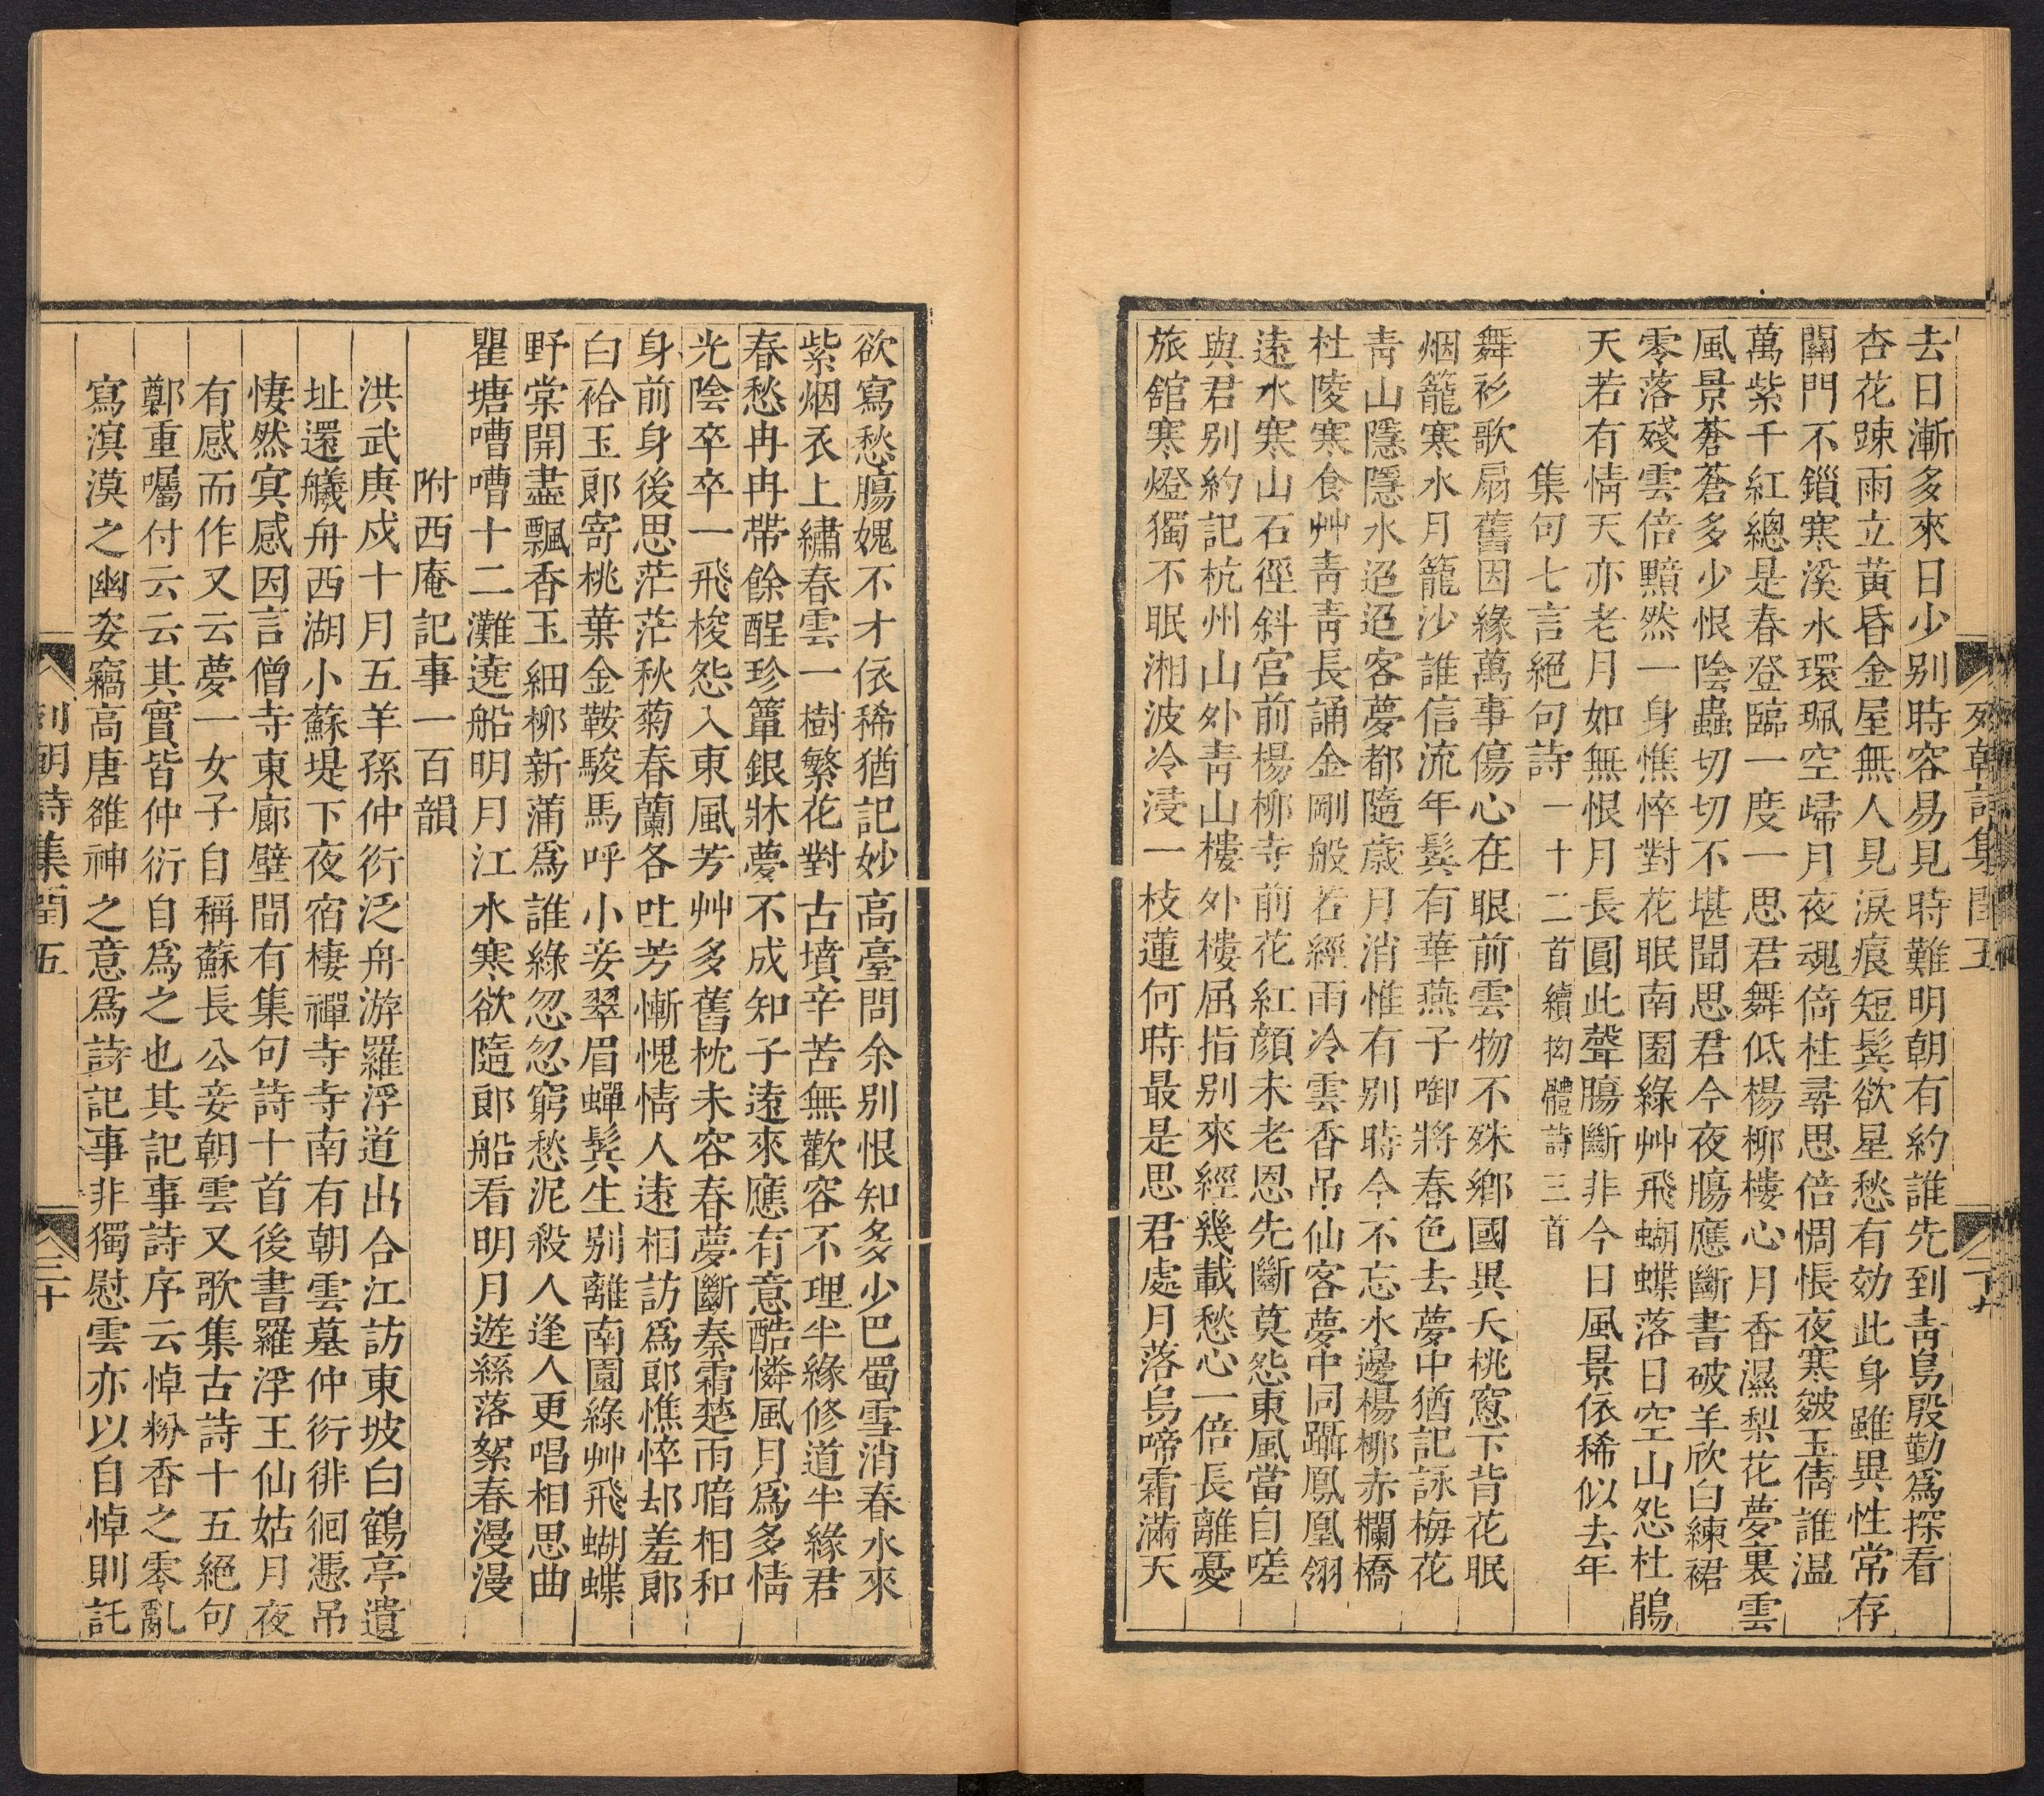 去日漸多來日少別時容易見時難明朝有約誰先到青鳥殷勤為探看
杏花踈雨立黃昏金屋無人見淚痕短鬂欲星愁有効此身雖異性常存
關門不鎖寒溪水環珮空歸月夜魂倚柱尋思倍惆悵夜寒皴玉倩誰温
萬紫千紅總是春登臨一度一思君舞低楊柳樓心月香濕梨花夢裏雲
風景蒼蒼多少恨陰蟲切切不堪聞思君今夜膓應斷書破羊欣白練裙
零落殘雲倍黯然一身憔悴對花眠南園綠艸飛蝴蝶落日空山怨杜鵑
天若有情天亦老月如無恨月長圓此聲膓斷非今日風景依稀似去年
集句七言絕句詩一十二首續拗體詩三首
舞衫歌扇舊因緣萬事傷心在眼前雲物不殊鄉國異夭桃窻下背花眠
烟籠寒水月籠沙誰信流年鬂有華燕子啣將春色去夢中猶記詠梅花
青山隱隱水迢迢客夢都隨歲月消惟有別時今不忘水邊楊柳赤欄橋
杜陵寒食艸青青長誦金剛般若經雨冷雲香吊仙客夢中同躡鳳凰翎
遠水寒山石徑斜宮前楊柳寺前花紅顏未老恩先斷莫怨東風當自嗟
與君別約記杭州山外青山樓外樓屈指別來經幾載愁心一倍長離憂
旅舘寒燈獨不眠湘波冷浸一枝蓮何時最是思君處月落烏啼霜滿天
欲寫愁膓媿不才依稀猶記妙高臺問余別恨知多少巴蜀雪消春水來
紫烟衣上繡春雲一樹繁花對古墳辛苦無歡容不理半緣修道半緣君
春愁冉冉帶餘酲珍簟銀牀夢不成知子遠來應有意酷憐風月為多情
光陰卒卒一飛梭怨入東風芳艸多舊枕未容春夢斷秦霜楚雨暗相和
身前身後思茫茫秋菊春蘭各吐芳慚愧情人遠相訪為郎憔悴却羞郎
白袷玉郎寄桃葉金鞍駿馬呼小妾翠眉蟬鬂生別離南園綠艸飛蝴蝶
野棠開盡飄香玉細柳新蒲為誰綠忽忽窮愁泥殺人逢人更唱相思曲
瞿塘嘈嘈十二灘遶船明月江水寒欲隨郎船看明月遊絲落絮春漫漫
附西庵記事一百韻
洪武庚戍十月五羊孫仲衍泛舟游羅浮道出合江訪東坡白鶴亭遺
址還艤舟西湖小蘇堤下夜宿棲禪寺寺南有朝雲墓仲衍徘徊憑吊
悽然寘感因言僧寺東廊壁間有集句詩十首後書羅浮王仙姑月夜
有感而作又云夢一女子自稱蘇長公妾朝雲又歌集古詩十五絕句
鄭重囑付云云其實皆仲衍自為之也其記事詩序云悼粉香之零亂
寫溟漠之幽姿竊高唐雒神之意為詩記事非獨慰雲亦以自悼則託
列朝詩集閏五
三十